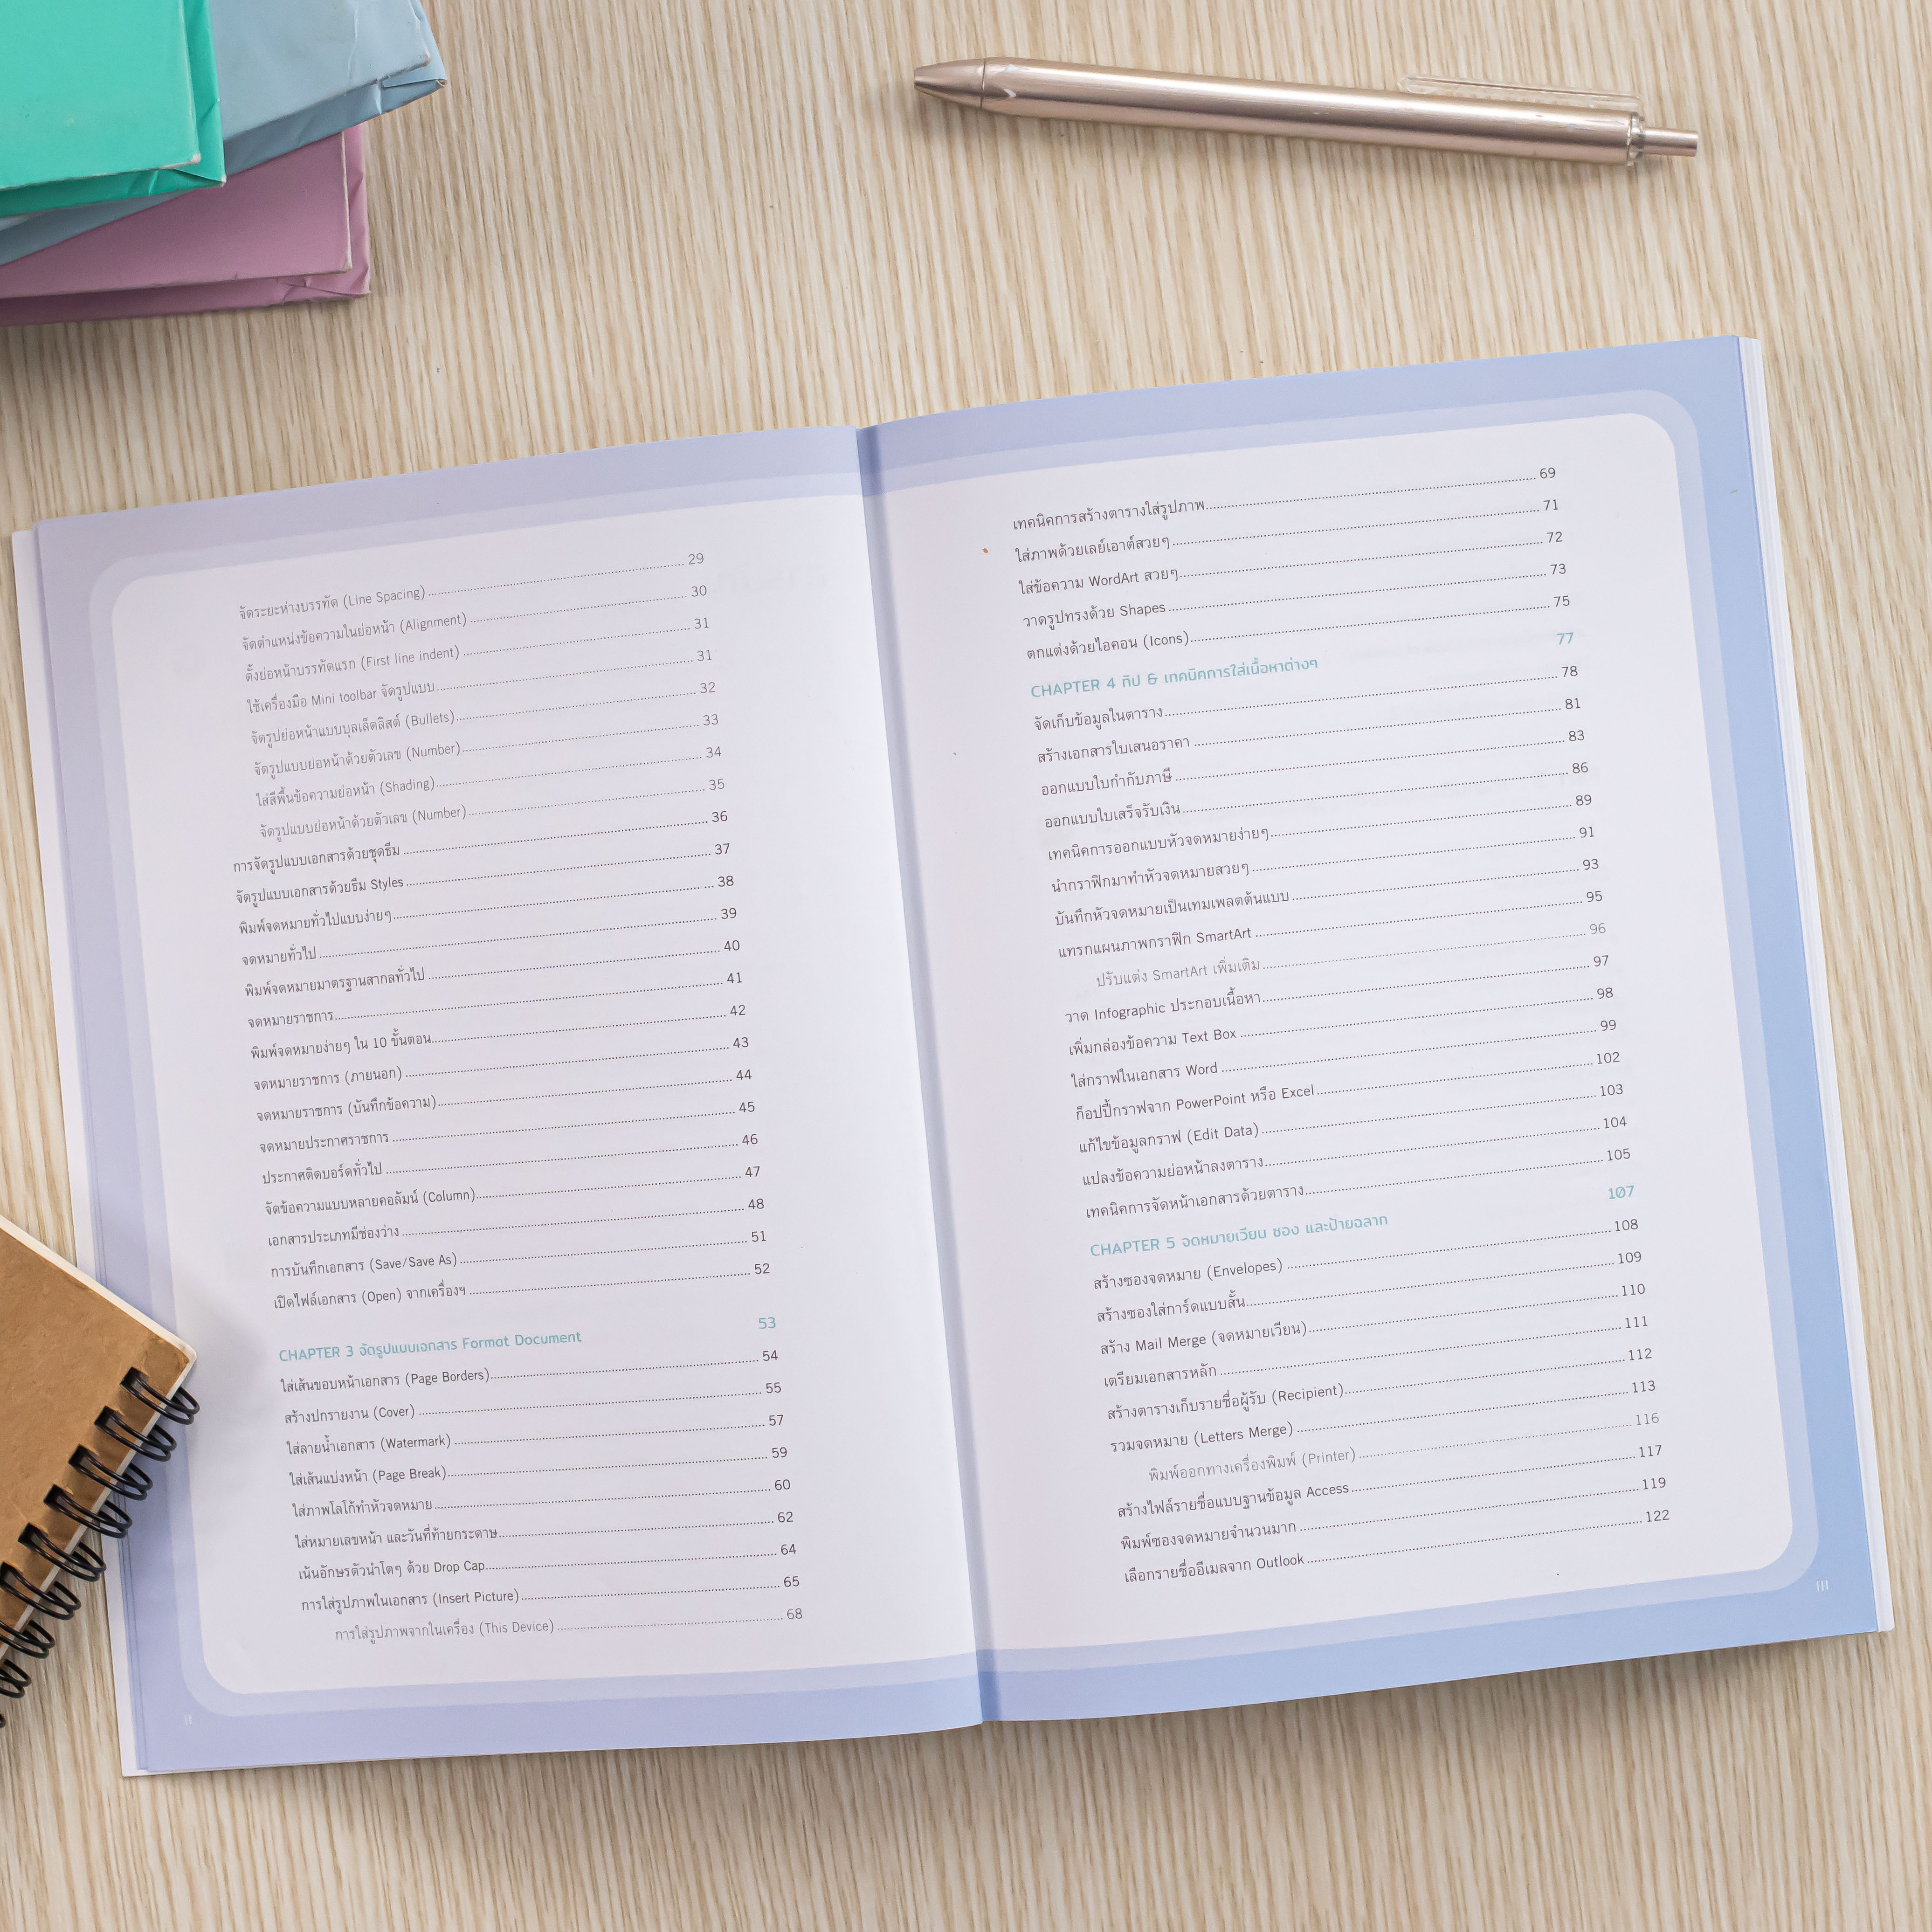 จัดระยะห่างบรรทัด (Line Spacing) 29
จัดตำแหน่งข้อความในย่อหน้า (Alignment) 30
ตั้งย่อหน้าบรรทัดแรก (First line indent) 31
ใช้เครื่องมือ Mini toolbar จัดรูปแบบ 31
จัดรูปย่อหน้าแบบบุลเล็ตลิสต์ (Bullets) 32
จัดรูปแบบย่อหน้าด้วยตัวเลข (Number) 33
ใส่สีพื้นข้อความย่อหน้า (Shading) 34
จัดรูปแบบย่อหน้าด้วยตัวเลข (Number) 35
การจัดรูปแบบเอกสารด้วยชุดธีม 36
จัดรูปแบบเอกสารด้วยธีม Styles 37
พิมพ์จดหมายทั่วไปแบบง่ายๆ 38
จดหมายทั่วไป 39
พิมพ์จดหมายมาตรฐานสากลทั่วไป 40
จดหมายราชการ 41
พิมพ์จดหมายง่ายๆ ใน 10 ขั้นตอน 42
จดหมายราชการ (ภายนอก) 43
จดหมายราชการ (บันทึกข้อความ) 44
จดหมายประกาศราชการ 45
ประกาศติดบอร์ดทั่วไป 46
จัดข้อความแบบหลายคอลัมน์ (Column) 47
เอกสารประเภทมีช่องว่าง 48
การบันทึกเอกสาร (Save/Save As) 51
เปิดไฟล์เอกสาร (Open) จากเครื่องฯ 52
CHAPTER 3 จัดรูปแบบเอกสาร Format Document 53
ใส่เส้นขอบหน้าเอกสาร (Page Borders) 54
สร้างปกรายงาน (Cover) 55
ใส่ลายน้ำเอกสาร (Watermark) 57
ใส่เส้นแบ่งหน้า (Page Break) 59
ใส่ภาพโลโก้ทำหัวจดหมาย 60
ใส่หมายเลขหน้า และวันที่ท้ายกระดาษ 62
เน้นอักษรตัวนำโตๆ ด้วย Drop Cap 64
การใส่รูปภาพในเอกสาร (Insert Picture) 65
การใส่รูปภาพจากในเครื่อง (This Device) 68
II
เทคนิคการสร้างตารางใส่รูปภาพ 69
ใส่ภาพด้วยเลย์เอาต์สวยๆ 71
ใส่ข้อความ WordArt สวยๆ 72
วาดรูปทรงด้วย Shapes 73
ตกแต่งด้วยไอคอน (Icons) 75
CHAPTER 4 ทิป & เทคนิคการใส่เนื้อหาต่างๆ 77
จัดเก็บข้อมูลในตาราง 78
สร้างเอกสารใบเสนอราคา 81
ออกแบบใบกำกับภาษี 83
ออกแบบใบเสร็จรับเงิน 86
เทคนิคการออกแบบหัวจดหมายง่ายๆ 89
นำกราฟิกมาทำหัวจดหมายสวยๆ 91
บันทึกหัวจดหมายเป็นเทมเพลตต้นแบบ 93
แทรกแผนภาพกราฟิก SmartArt 95
ปรับแต่ง SmartArt เพิ่มเติม 96
วาด Infographic ประกอบเนื้อหา 97
เพิ่มกล่องข้อความ Text Box 98
ใส่กราฟในเอกสาร Word 99
ก็อปปี้กราฟจาก PowerPoint หรือ Excel 102
แก้ไขข้อมูลกราฟ (Edit Data) 103
แปลงข้อความย่อหน้าลงตาราง 104
เทคนิคการจัดหน้าเอกสารด้วยตาราง 105
CHAPTER 5 จดหมายเวียน ซอง และป้ายฉลาก 107
สร้างซองจดหมาย (Envelopes) 108
สร้างซองใส่การ์ดแบบสั้น 109
สร้าง Mail Merge (จดหมายเวียน) 110
เตรียมเอกสารหลัก 111
สร้างตารางเก็บรายชื่อผู้รับ (Recipient) 112
รวมจดหมาย (Letters Merge) 113
พิมพ์ออกทางเครื่องพิมพ์ (Printer) 116
สร้างไฟล์รายชื่อแบบฐานข้อมูล Access 117
พิมพ์ซองจดหมายจำนวนมาก 119
เลือกรายชื่ออีเมลจาก Outlook 122
III